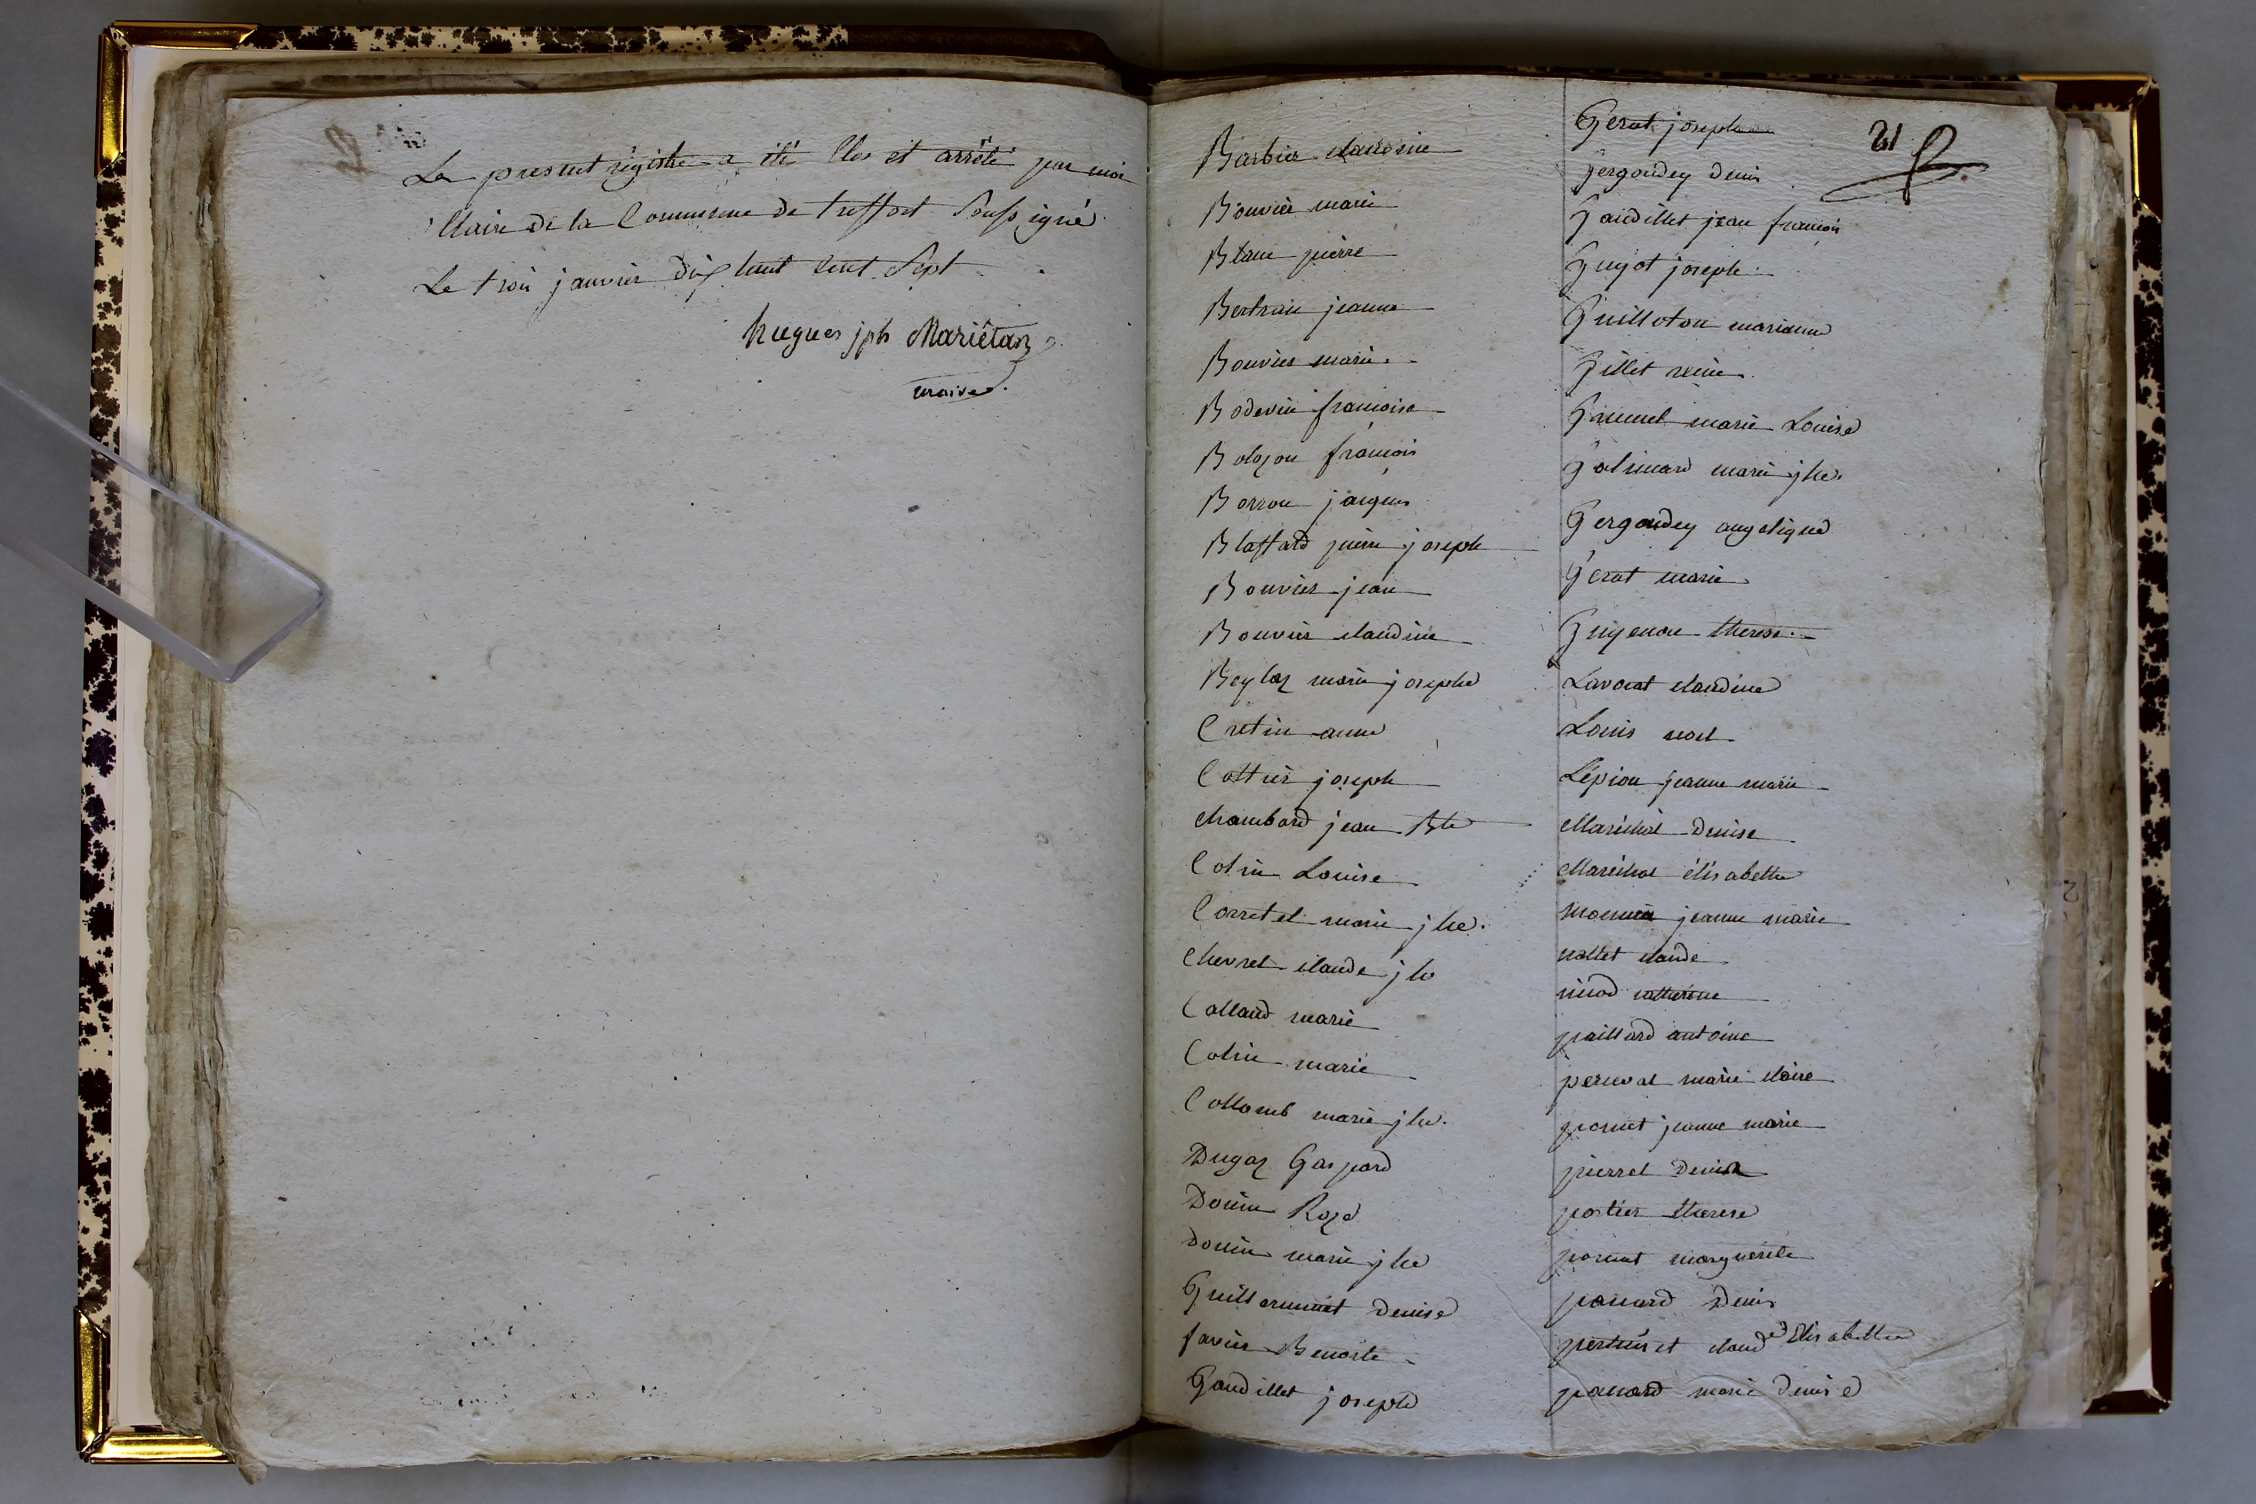 Le present régistre a été Clos et arrêté par moi
Maire de la Commune de treffort Soussigné
Le trois janvier dix huit cent Sept
hugues jph Mariétan
maire.
Barbier claudine
Bouvier marie
Blanc pierre
Bertrain jeanne
Bouvier marie.
Bodevin francoise
Bolozon françois
Borron jacques
Blassard pierre joseph
Bouvier jean
Bouvier claudine
Beylaz marie josephe
Cretin anne
Cottier joseph
chambard jean Bte
Colin Louise
Corretel marie jhe.
Chevrel claude jh
Calland marie
Colin marie
Collomb marie jhe.
Dugaz Gaspard
Donin Roze
Donin marie jhe
Guillermet Denise
favier Benoite
Gaudillet joseph
21
Gerat joseph
Jergondey denis
Gaudillet jean françois
Guyot joseph
Guilloton marianne
Gillet reine
marie Louise
Galimard marie jhe.
Gergondey angelique
Gerat marie
Guyenon therese.
Lavocat claudine
Louis noel
Lépion jeanne marie
Maréchal Denise
Maréchal élisabethe
Monnier jeanne marie
nallet claude
nicod catherine
paillard antoine
perceval marie claire
pornet jeanne marie
pierrel Denise
portier therese
pornet marguerite
panard Denis
perthuiset claude Elisabethe
panard marie denise